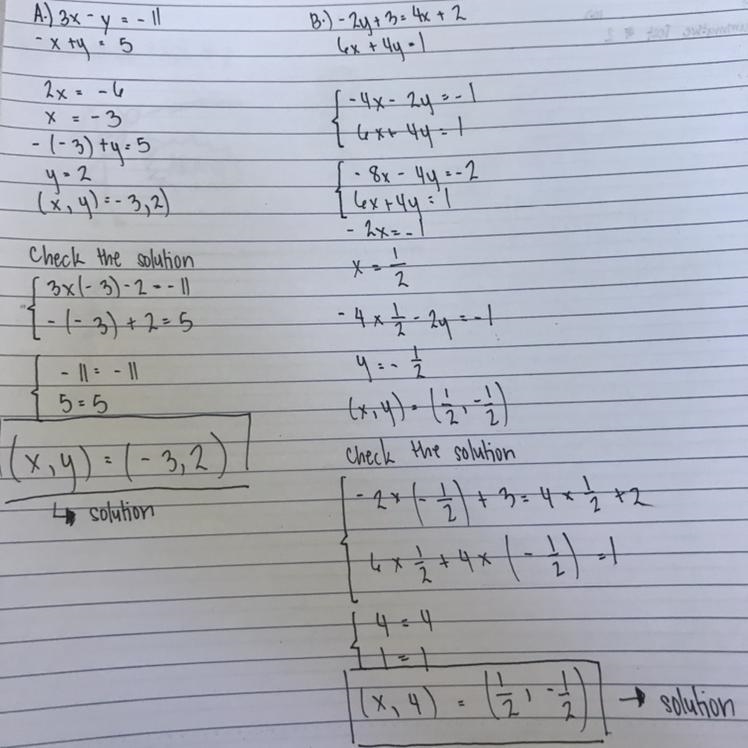 A.) 3x - y = - 11
- x + y = 5
2x = - 6
x = - 3
- (-3) + y = 5
y = 2
(x, y) = - 3, 2)
Check the solution
3x(- 3) - 2 = - 11
- (- 3) + 2 = 5
- 11 = - 11
5 = 5
(x, y) = (- 3, 2)
↳ solution
B.) - 2y + 3 = 4x + 2
6x + 4y = 1
- 4x - 2y = - 1
6x + 4y = 1
- 8x - 4y = - 2
6x + 4y = 1
- 2x = - 1
x = 1/2
- 4 x 1/2 - 2y = - 1
y = - 1/2
(x, y) = (1/2, - 1/2)
check the solution
- 2 x (- 1/2) + 3 = 4 x 1/2 + 2
6 x 1/2 + 4 x (- 1/2) = 1
4 = 4
1 = 1
(x, 4) = (1/2, - 1/2) → solution